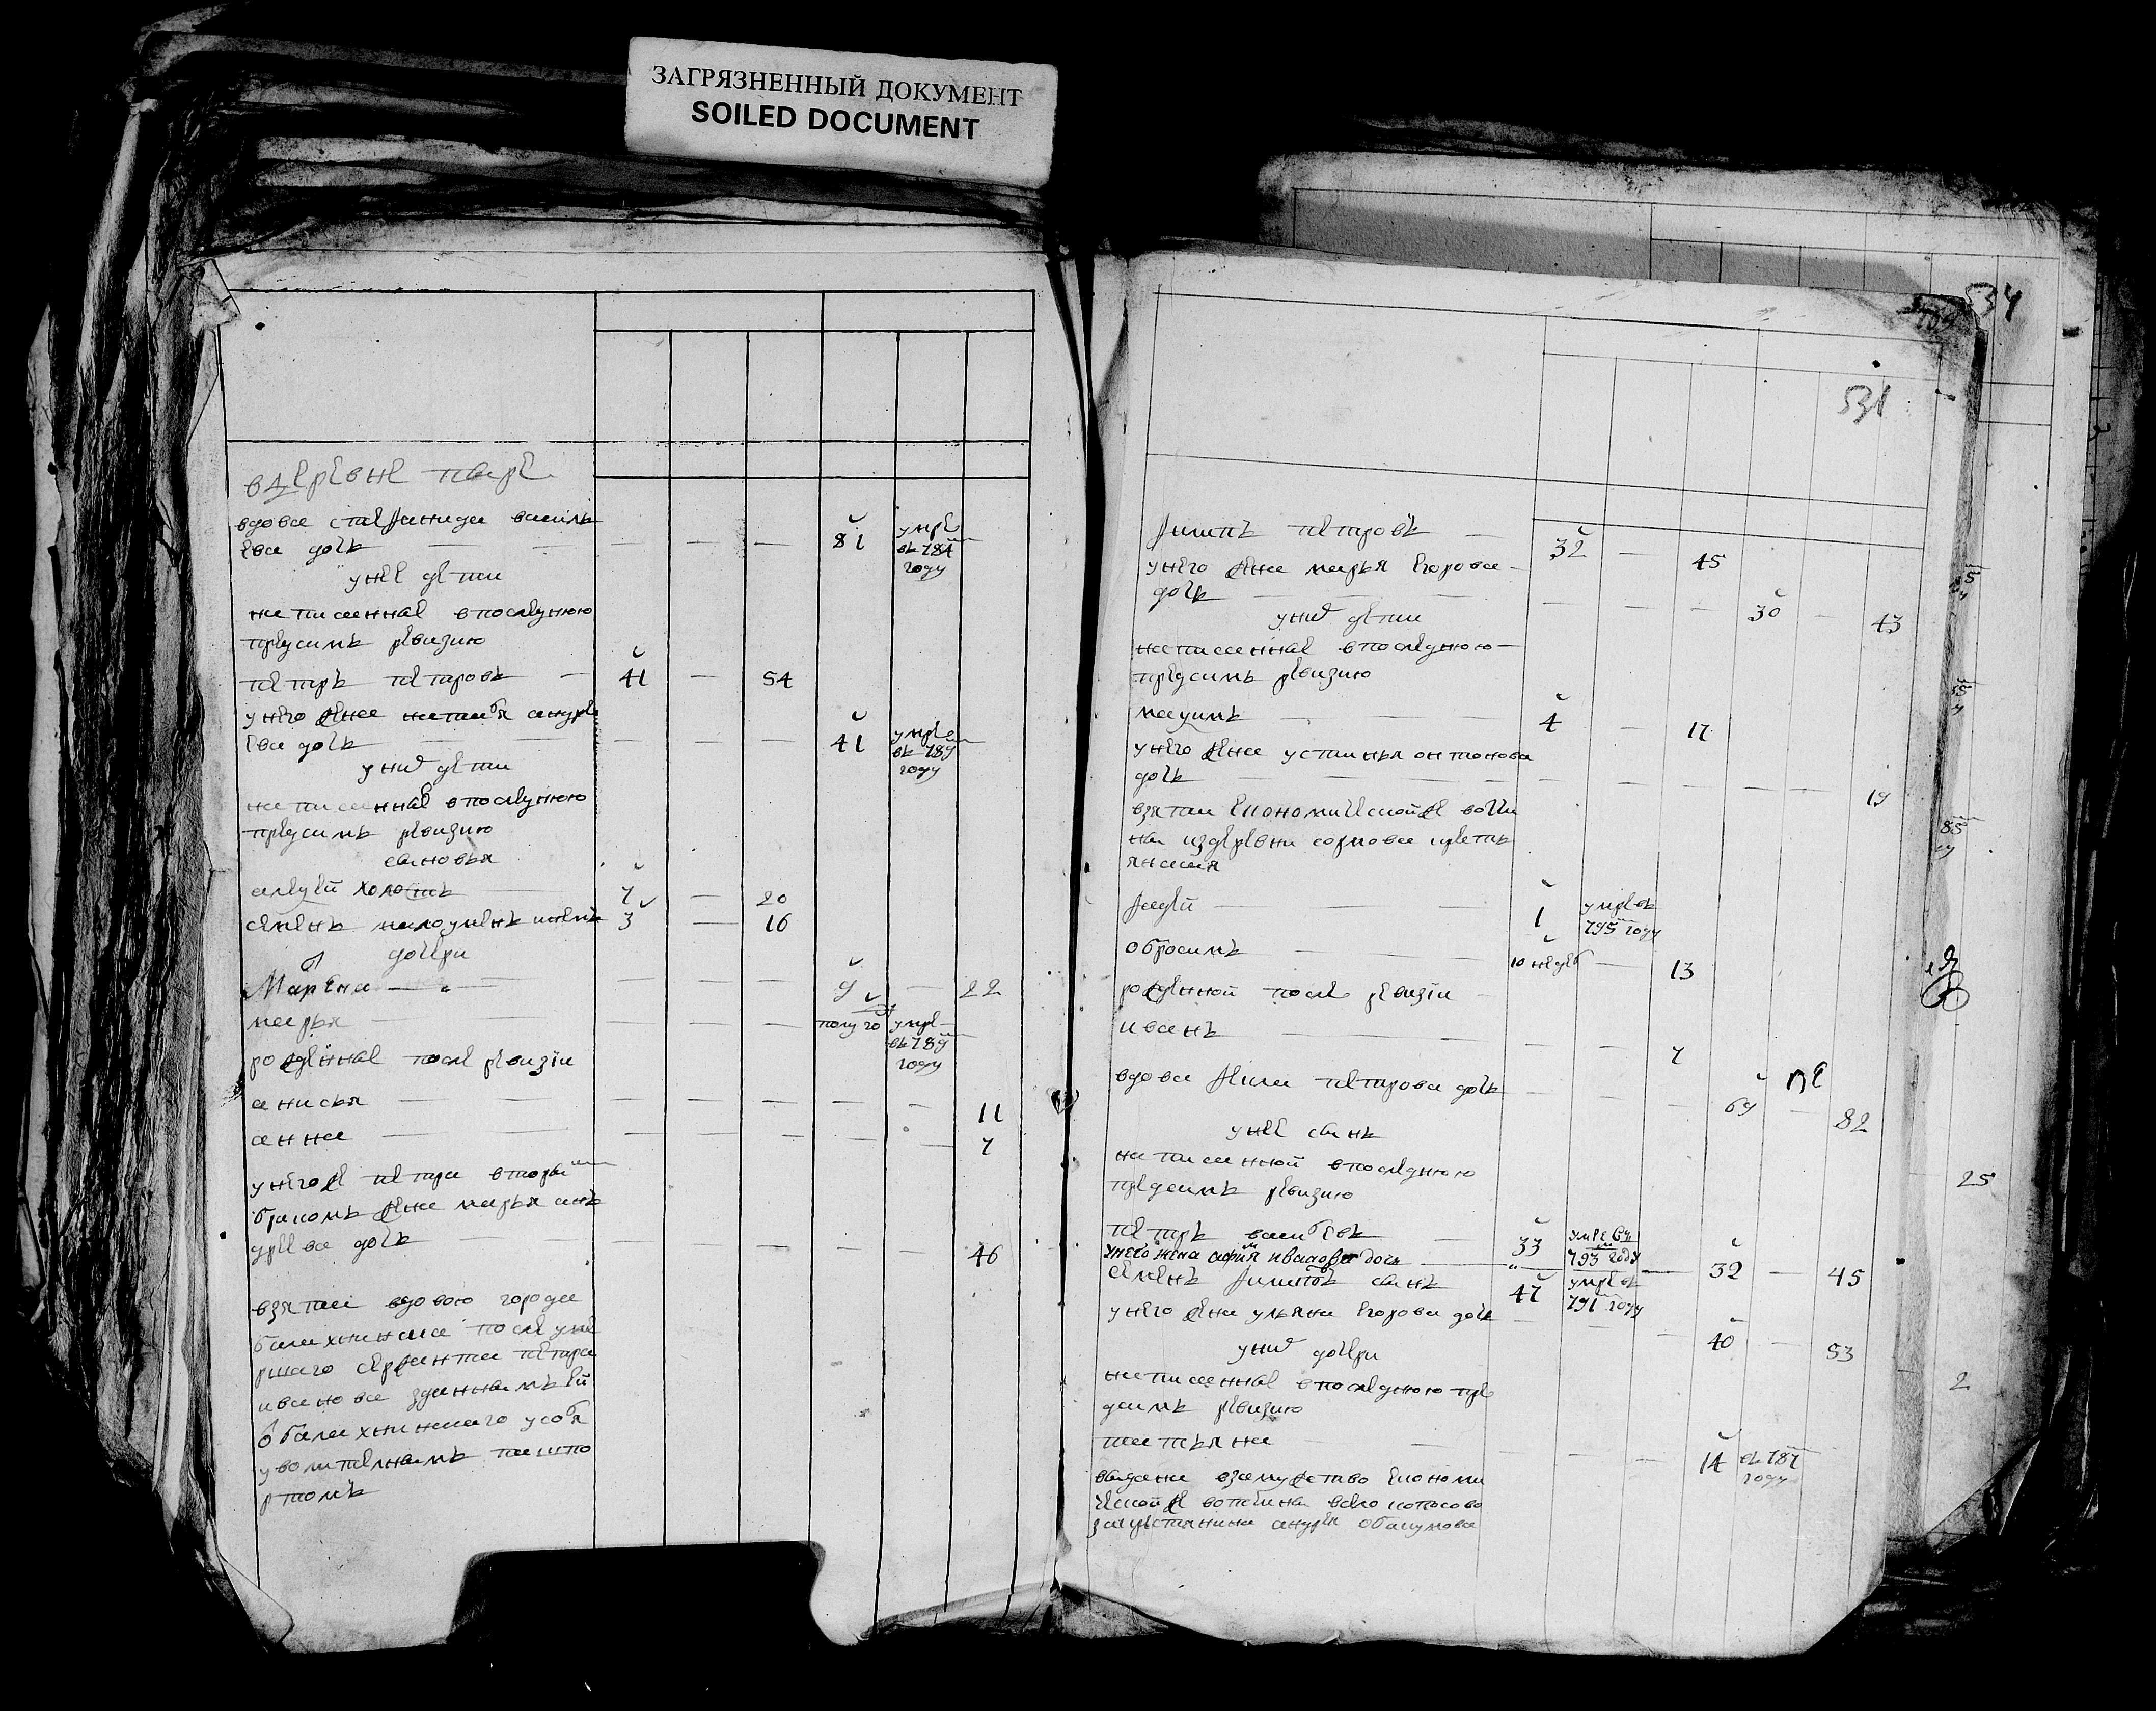 ЗАГРЯЗНЕННЫЙ ДОКУМЕНТ
SOILED DOCUMENT
в деревне
вдова стефанида василь
ева дочь — — — 81 умре в 784м году
у неё дети
написанныя в последнюю
пред сим ревизию
петръ петровъ — 41 — 54
у него жена наталья андре
ева дочь — — — 41 умре в 789м году
у них дети
написанныя в последнюю
пред симъ ревизию
сыновья
алексей холостъ 7 — 20
семенъ малоуменъ и немъ 3 — 16
дочери
Марѳна — — — 9 — 22
марья — — — полуго умре в 789м году
рожденныя после ревизiи
анисья — — — — — 11
анна — — — — — 7
у него ж петра вторым
браком жена марья анъ
дреева дочь — — — 46
взята вдовою города
балахны после уме
ршаго сержанта петра
иванова з данным ей
о балахнинскаго
увольтельнымъ пашпо
ртомъ
534
531
филипъ петровъ — 32 — 45
у него жена марья егорова
дочь — — — 30 — 43
у них дети
написанныя в последнюю
пред симъ ревизию
максимъ — 4 — 17
у него жена устинья онтонова
дочь — — — — — 19
взята економической же вотчи
ны из деревни сормова крестъ
янская
фадей — 1 умре въ 795м году
обросимъ — 10 недел — 13
рожденной после ревизiи
иванъ — — — 7
вдова фекла петрова дочь — — — 69 — 82
у неё сынъ
написанной в последнюю
пред симъ ревизию
петръ васильевъ 33 умре въ 793м году
у него жена софiя иванова дочь — 32 — 45
семенъ филиповъ сынъ 47 умре въ 791м году
у него жена ульяна егорова дочь — — — 40 — 53
у них дочери
написанныя в последнюю пре
д симъ ревизию
татьяна — — — 14 въ 787м году
выдана в замужество економи
ческой же вотчины село копосово
за крестьянина андрея обакумова
25
2